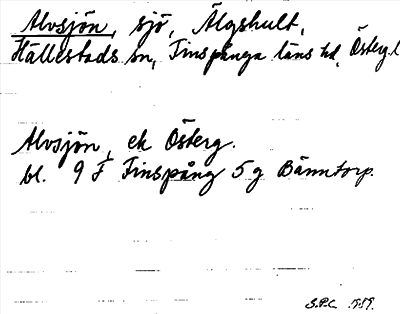 Alvsjön, sjö, Älgshult,
Hällestads sn, Finspånga läns hd, Österg.l
Alvsjön, ek Österg.
bl. 9 F Finspång 5 g Bänntorp.
S.P.C.